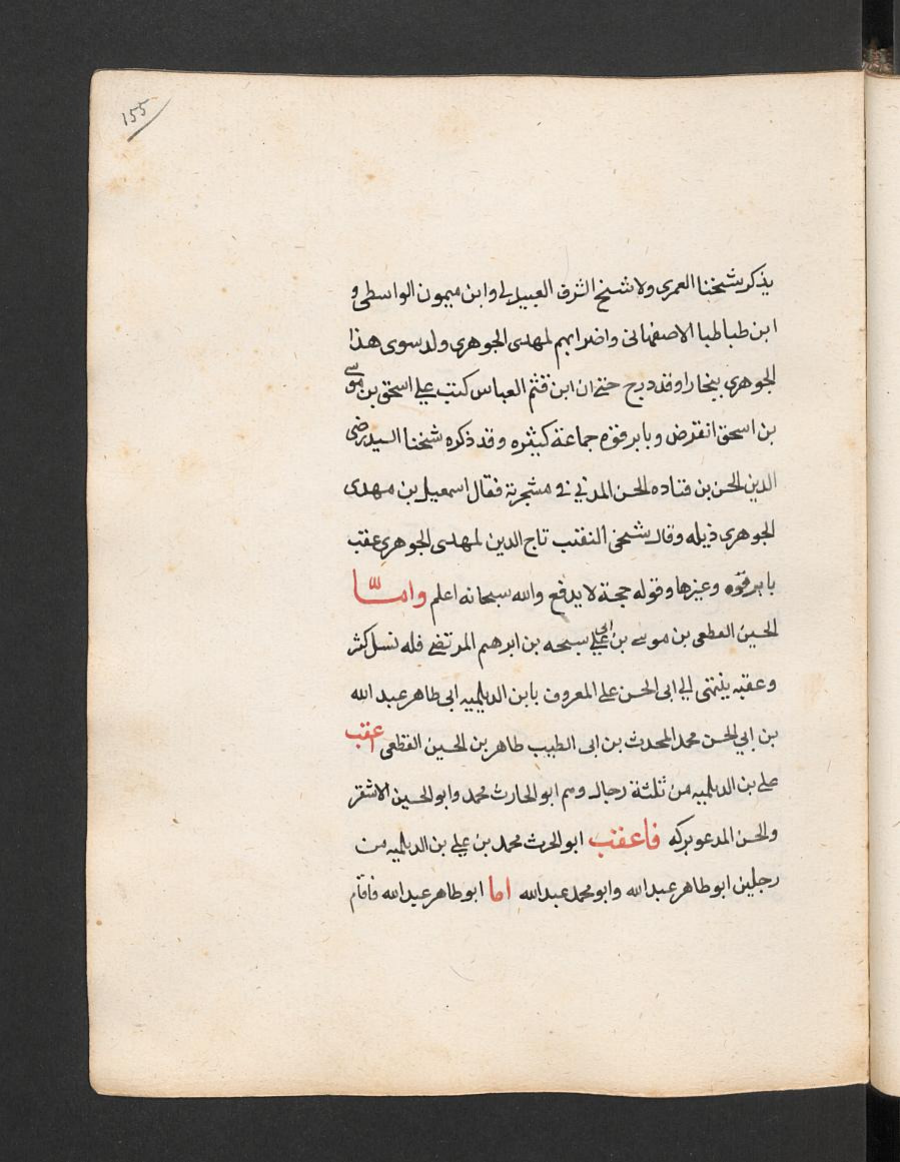 155
يذكر شيخنا العمرى ولا شيخ الشرف العبيدلى وابن ميمون الواسطى و
ابن طباطبا الاصفهانى واضرابهم لمهدى الجوهرى ولد سوى هذا
الجوهرى ببخارا وقد درج حتى ان ابن قثم العباس كتب على اسحق بن موسى
بن اسحق انقرض وبابرقوه جماعة كثيره وقد ذكره شيخنا السيد رضى
الدين الحسن بن قتاده الحسن المدنى فى مشجرته فقال اسمعيل بن مهدى
الجوهرى ذيله وقال شيخى النقيب تاج الدين لمهدى الجوهرى عقب
بابرقوه وغيرها وقوله حجة لا يدفع والله سبحانه اعلم وامّا
الحسين القطعى بن موسى بن ابى سبحه بن ابرهيم المرتضى فله نسل كثر
وعقبه ينتهى الى ابى الحسن على المعروف بابن الديلميه ابى طاهر عبد الله
بن ابى الحسن محمد المحدث بن ابى الطيب طاهر بن الحسين القطعى اعقب
على بن الديلميه من ثلثة رجال وهم ابو الحارث محمد وابو الحسين الاشقر
والحسن المدعو بركه فاعقب ابو الحرث محمد بن على بن الديلميه من
رجلين ابو طاهر عبد الله وابو محمد عبد الله اما ابو طاهر عبد الله فاقام